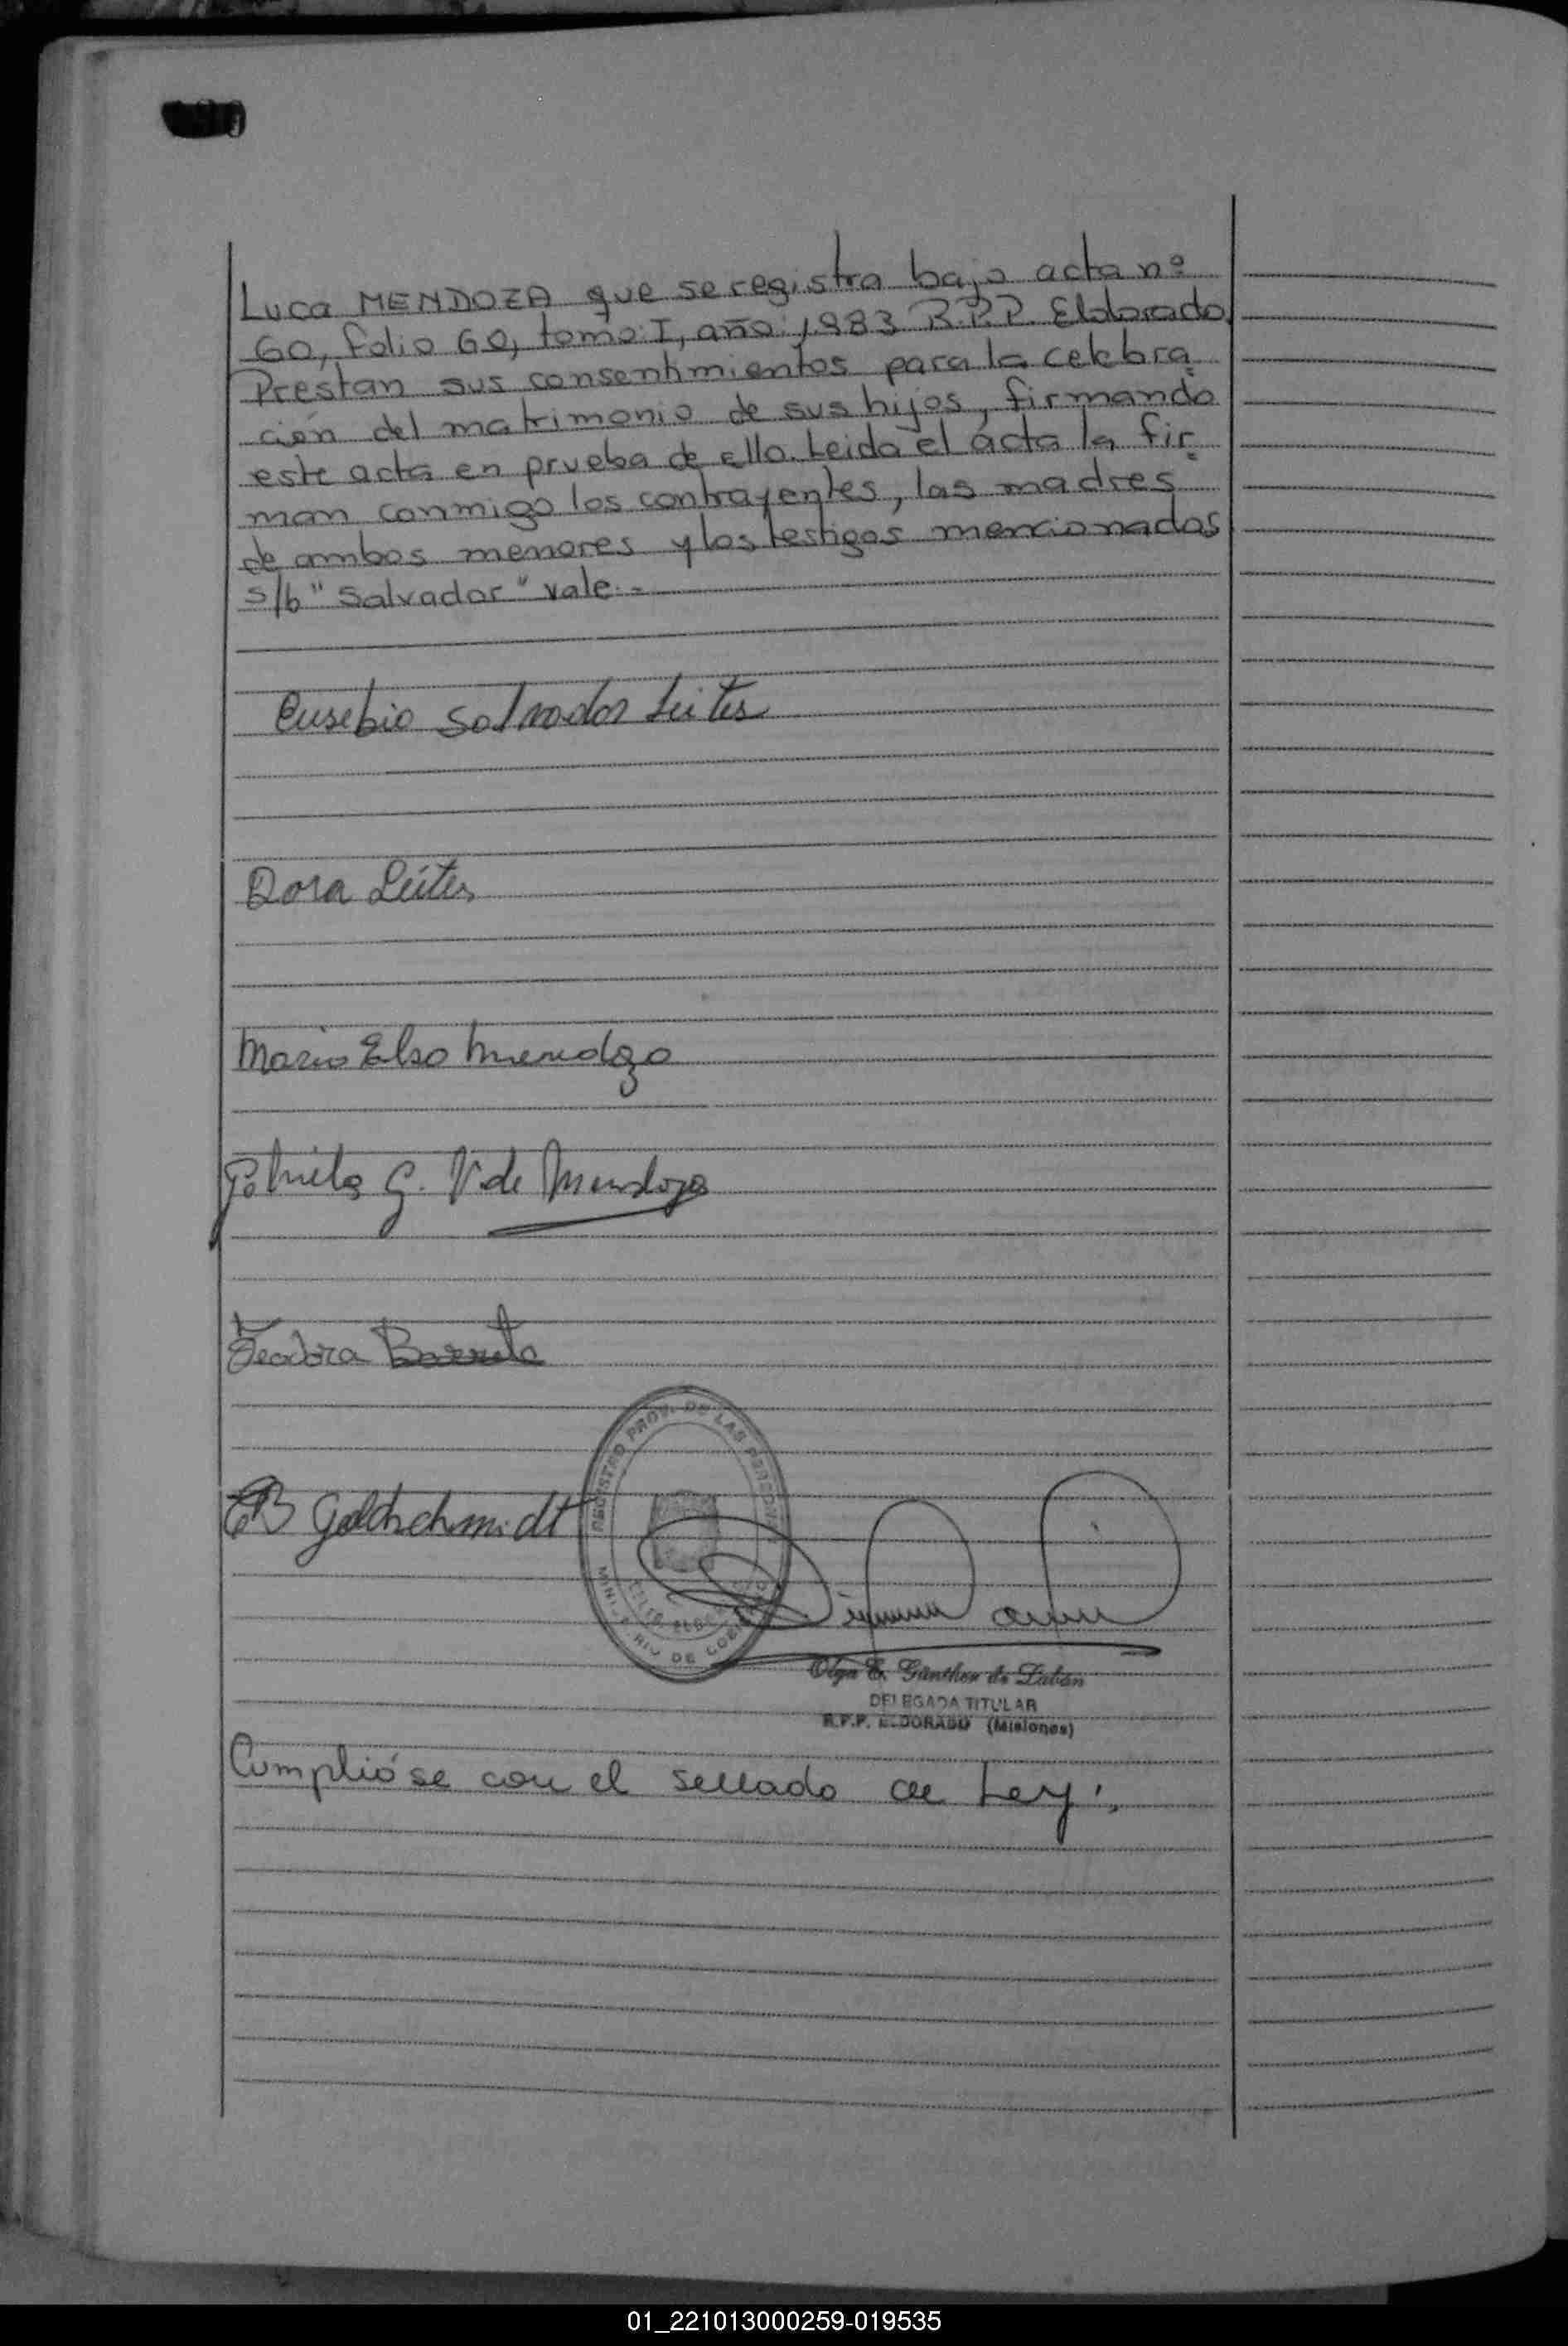 Luca MENDOZA que se registra bajo acta nº
60, folio 60, tomo: I, año: 1983 R.P.P. Eldorado.
Prestan sus consentimientos para la celebra=
ción del matrimonio de sus hijos, firmando
este acta en prueba de ello. Leida el acta la fir=
man conmigo los contrayentes, las madres
de ambos menores y los testigos mencionados
s/b "Salvador" vale.-
Eusebio Salvador Leites
Dora Leites
Mario Elso Mendoza
G. V. de Mendoza
Teodora Barreto
Goldschmidt
REGISTRO PROV. DE LAS PERSONAS
MINISTERIO DE GOBIERNO
Olga E. Günther de Labán
DELEGADA TITULAR
R.P.P. ELDORADO (Misiones)
Cumplióse con el sellado de Ley.
01_221013000259-019535